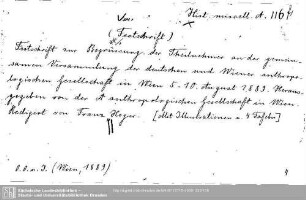 Hist. miscell. A. 1167
Von
(Festschrift)
Festschrift zur Begrüssung der Theilnehmer an der gemein-
samen Versammlung der deutschen und Wiener anthropo-
logischen Gesellschaft in Wien 5.-10. August 1889. Heraus-
gegeben von der anthropologischen Gesellschaft in Wien
Redigirt von Franz Heger. [Mit Illustrationen u. 4 Tafeln]
o. O. u. J. (Wien, 1889)
4
Sächsische Landesbibliothek -
Staats- und Universitätsbibliothek Dresden